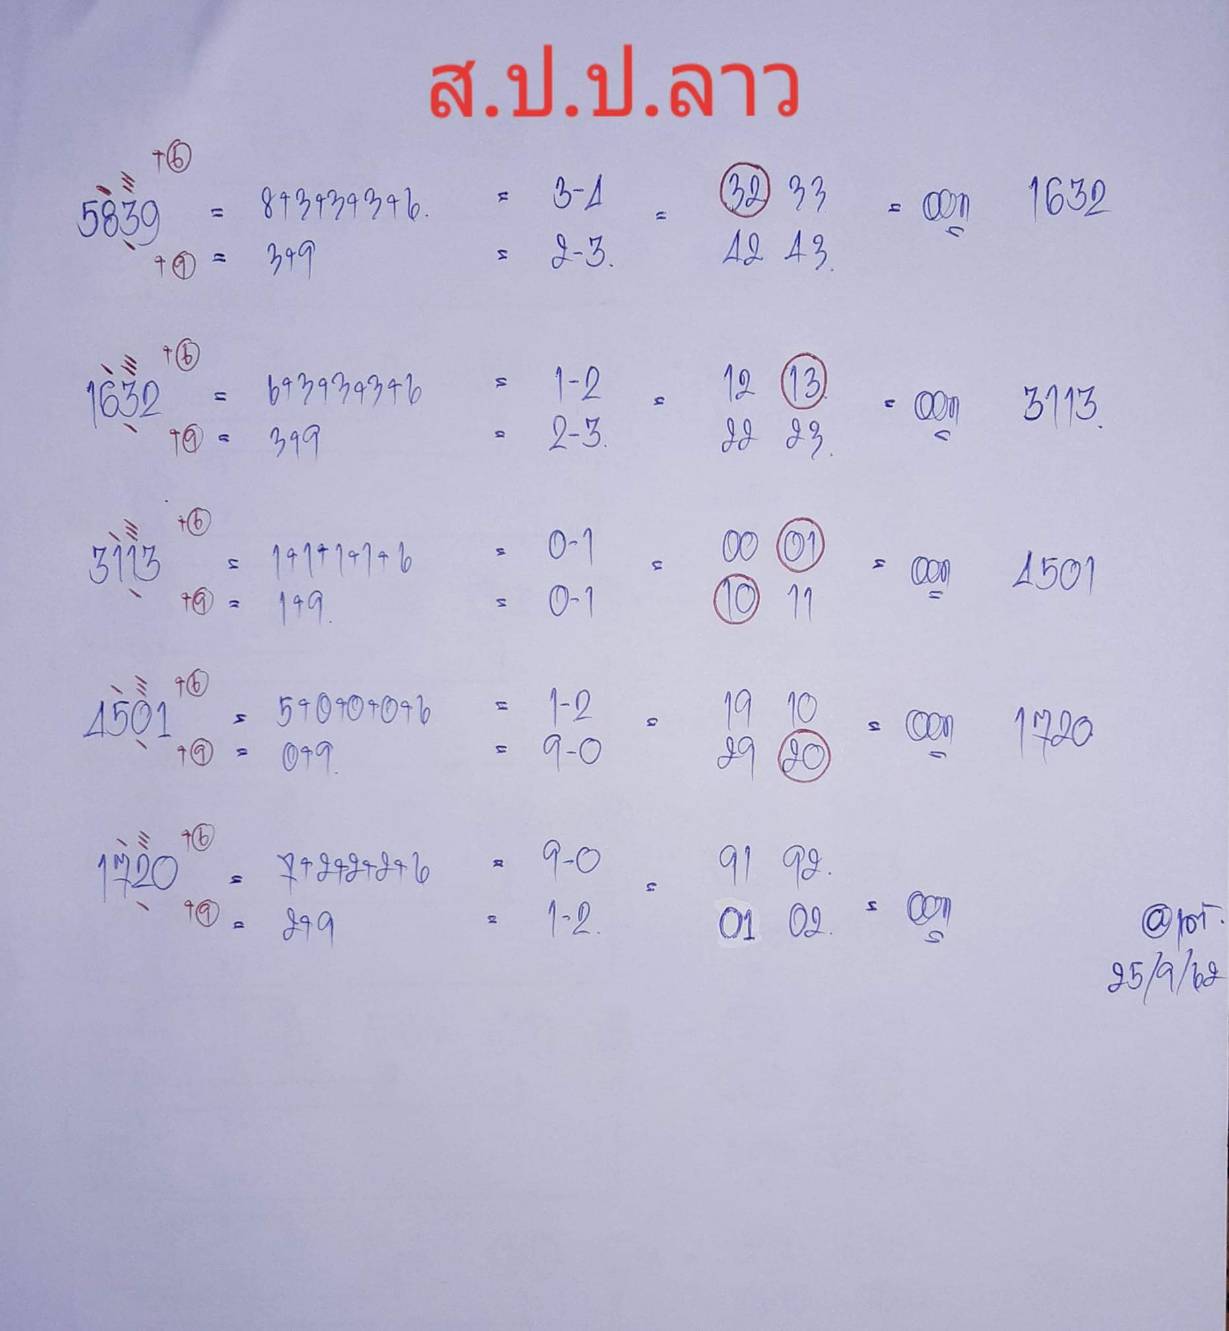 ส.ป.ป.ลาว
+6
5839 = 8+3+3+3+6. = 3-4 = 32 33 = ออก 1632
+9 = 3+9 = 2-3. 42 43.
+6
1632 = 6+3+3+3+6 = 1-2 = 12 13. = ออก 3113.
+9 = 3+9 = 2-3. 22 23.
+6
3113 = 1+1+1+1+6 = 0-1 = 00 01 = ออก 4501
+9 = 1+9. = 0-1 10 11
+6
4501 = 5+0+0+0+6 = 1-2 = 19 10 = ออก 1720
+9 = 0+9. = 9-0 29 20
+6
1720 = 7+2+2+2+6 = 9-0 = 91 92. = ออก
+9 = 2+9 = 1-2. 01 02.
25/9/62